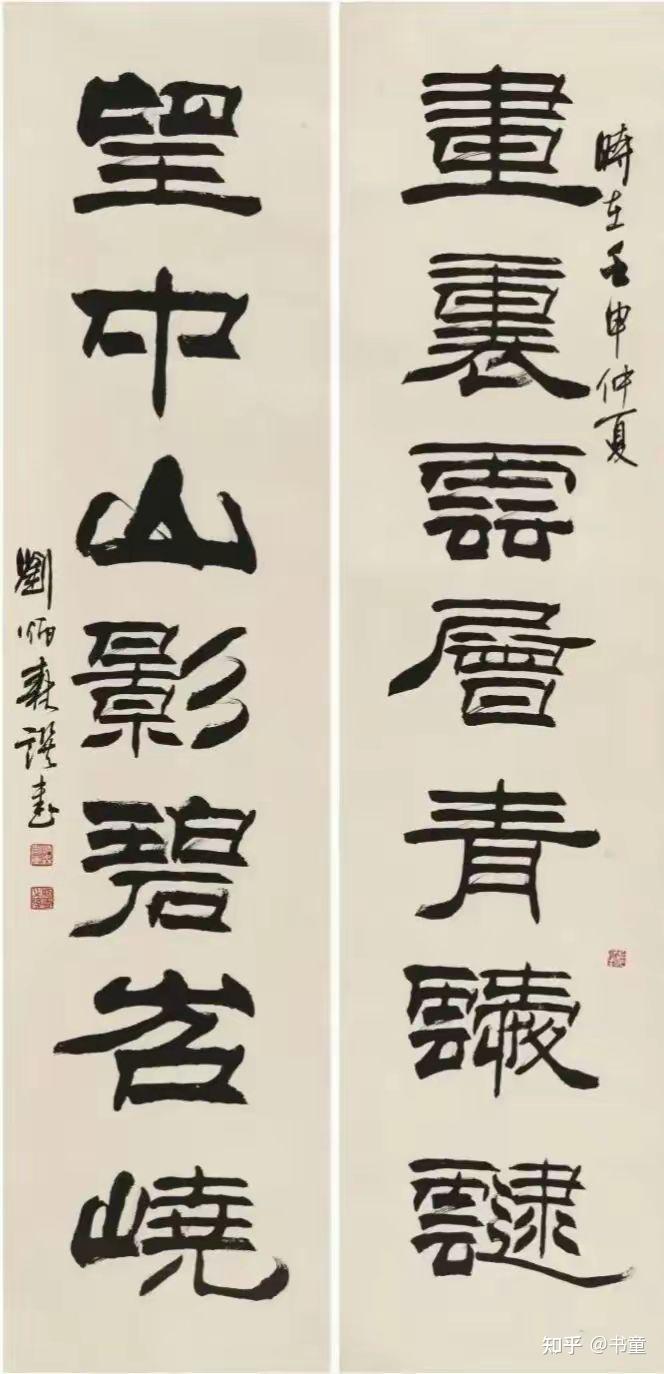 畫裏雲層青靉靆
時在壬申仲夏
望中山影碧岧嶢
劉炳森譔書
知乎 @书童